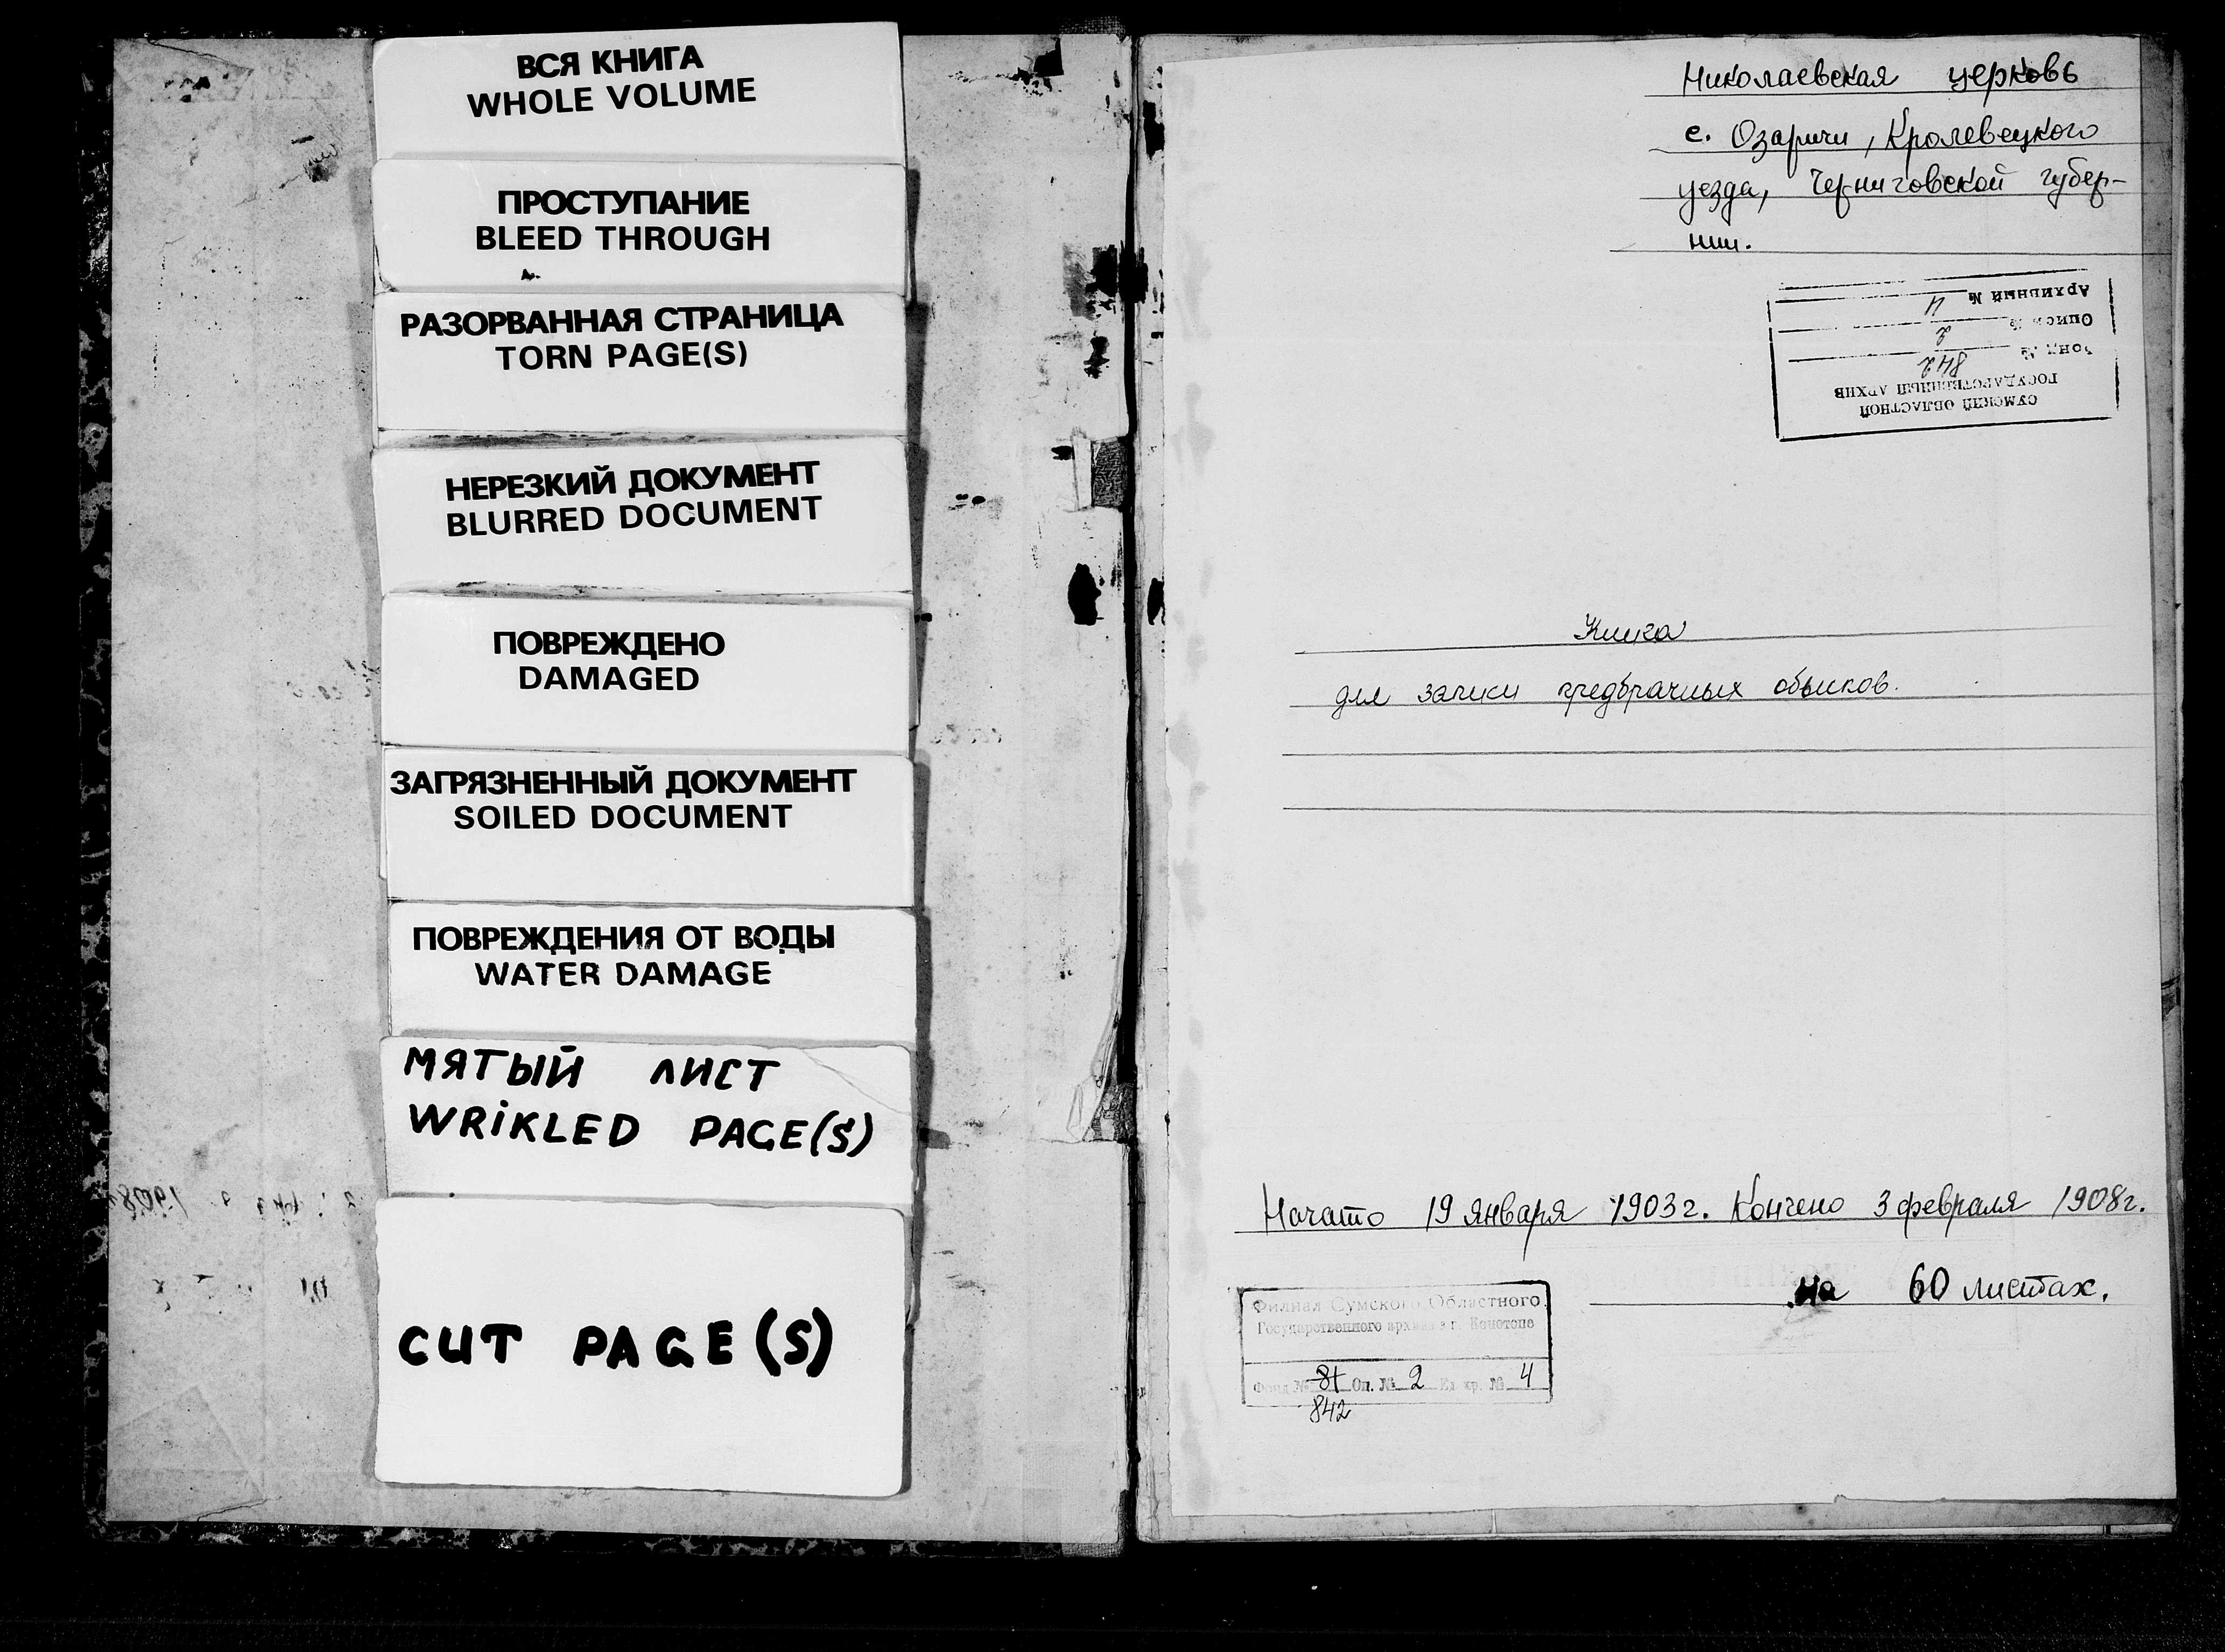 ВСЯ КНИГА
WHOLE VOLUME
ПРОСТУПАНИЕ
BLEED THROUGH
РАЗОРВАННАЯ СТРАНИЦА
TORN PAGE(S)
НЕРЕЗКИЙ ДОКУМЕНТ
BLURRED DOCUMENT
ПОВРЕЖДЕНО
DAMAGED
ЗАГРЯЗНЕННЫЙ ДОКУМЕНТ
SOILED DOCUMENT
ПОВРЕЖДЕНИЯ ОТ ВОДЫ
WATER DAMAGE
МЯТЫЙ ЛИСТ
WRIKLED PAGE(S)
CUT PAGE(S)
Николаевская церковь
с. Озаричи, Кролевецкого
уезда, Черниговской губер-
нии.
СУМСКИЙ ОБЛАСТНОЙ
ГОСУДАРСТВЕННЫЙ АРХИВ
Фонд № 842
Опись № 2
Архивный № 4
Книга
для записи предбрачных обысков.
Начато 19 января 1903г. Кончено 3 февраля 1908г.
на 60 листах.
Филиал Сумского Областного
Государственного архива в г. Конотопе
Фонд № 81 Оп. № 2 Ед. хр. № 4
842